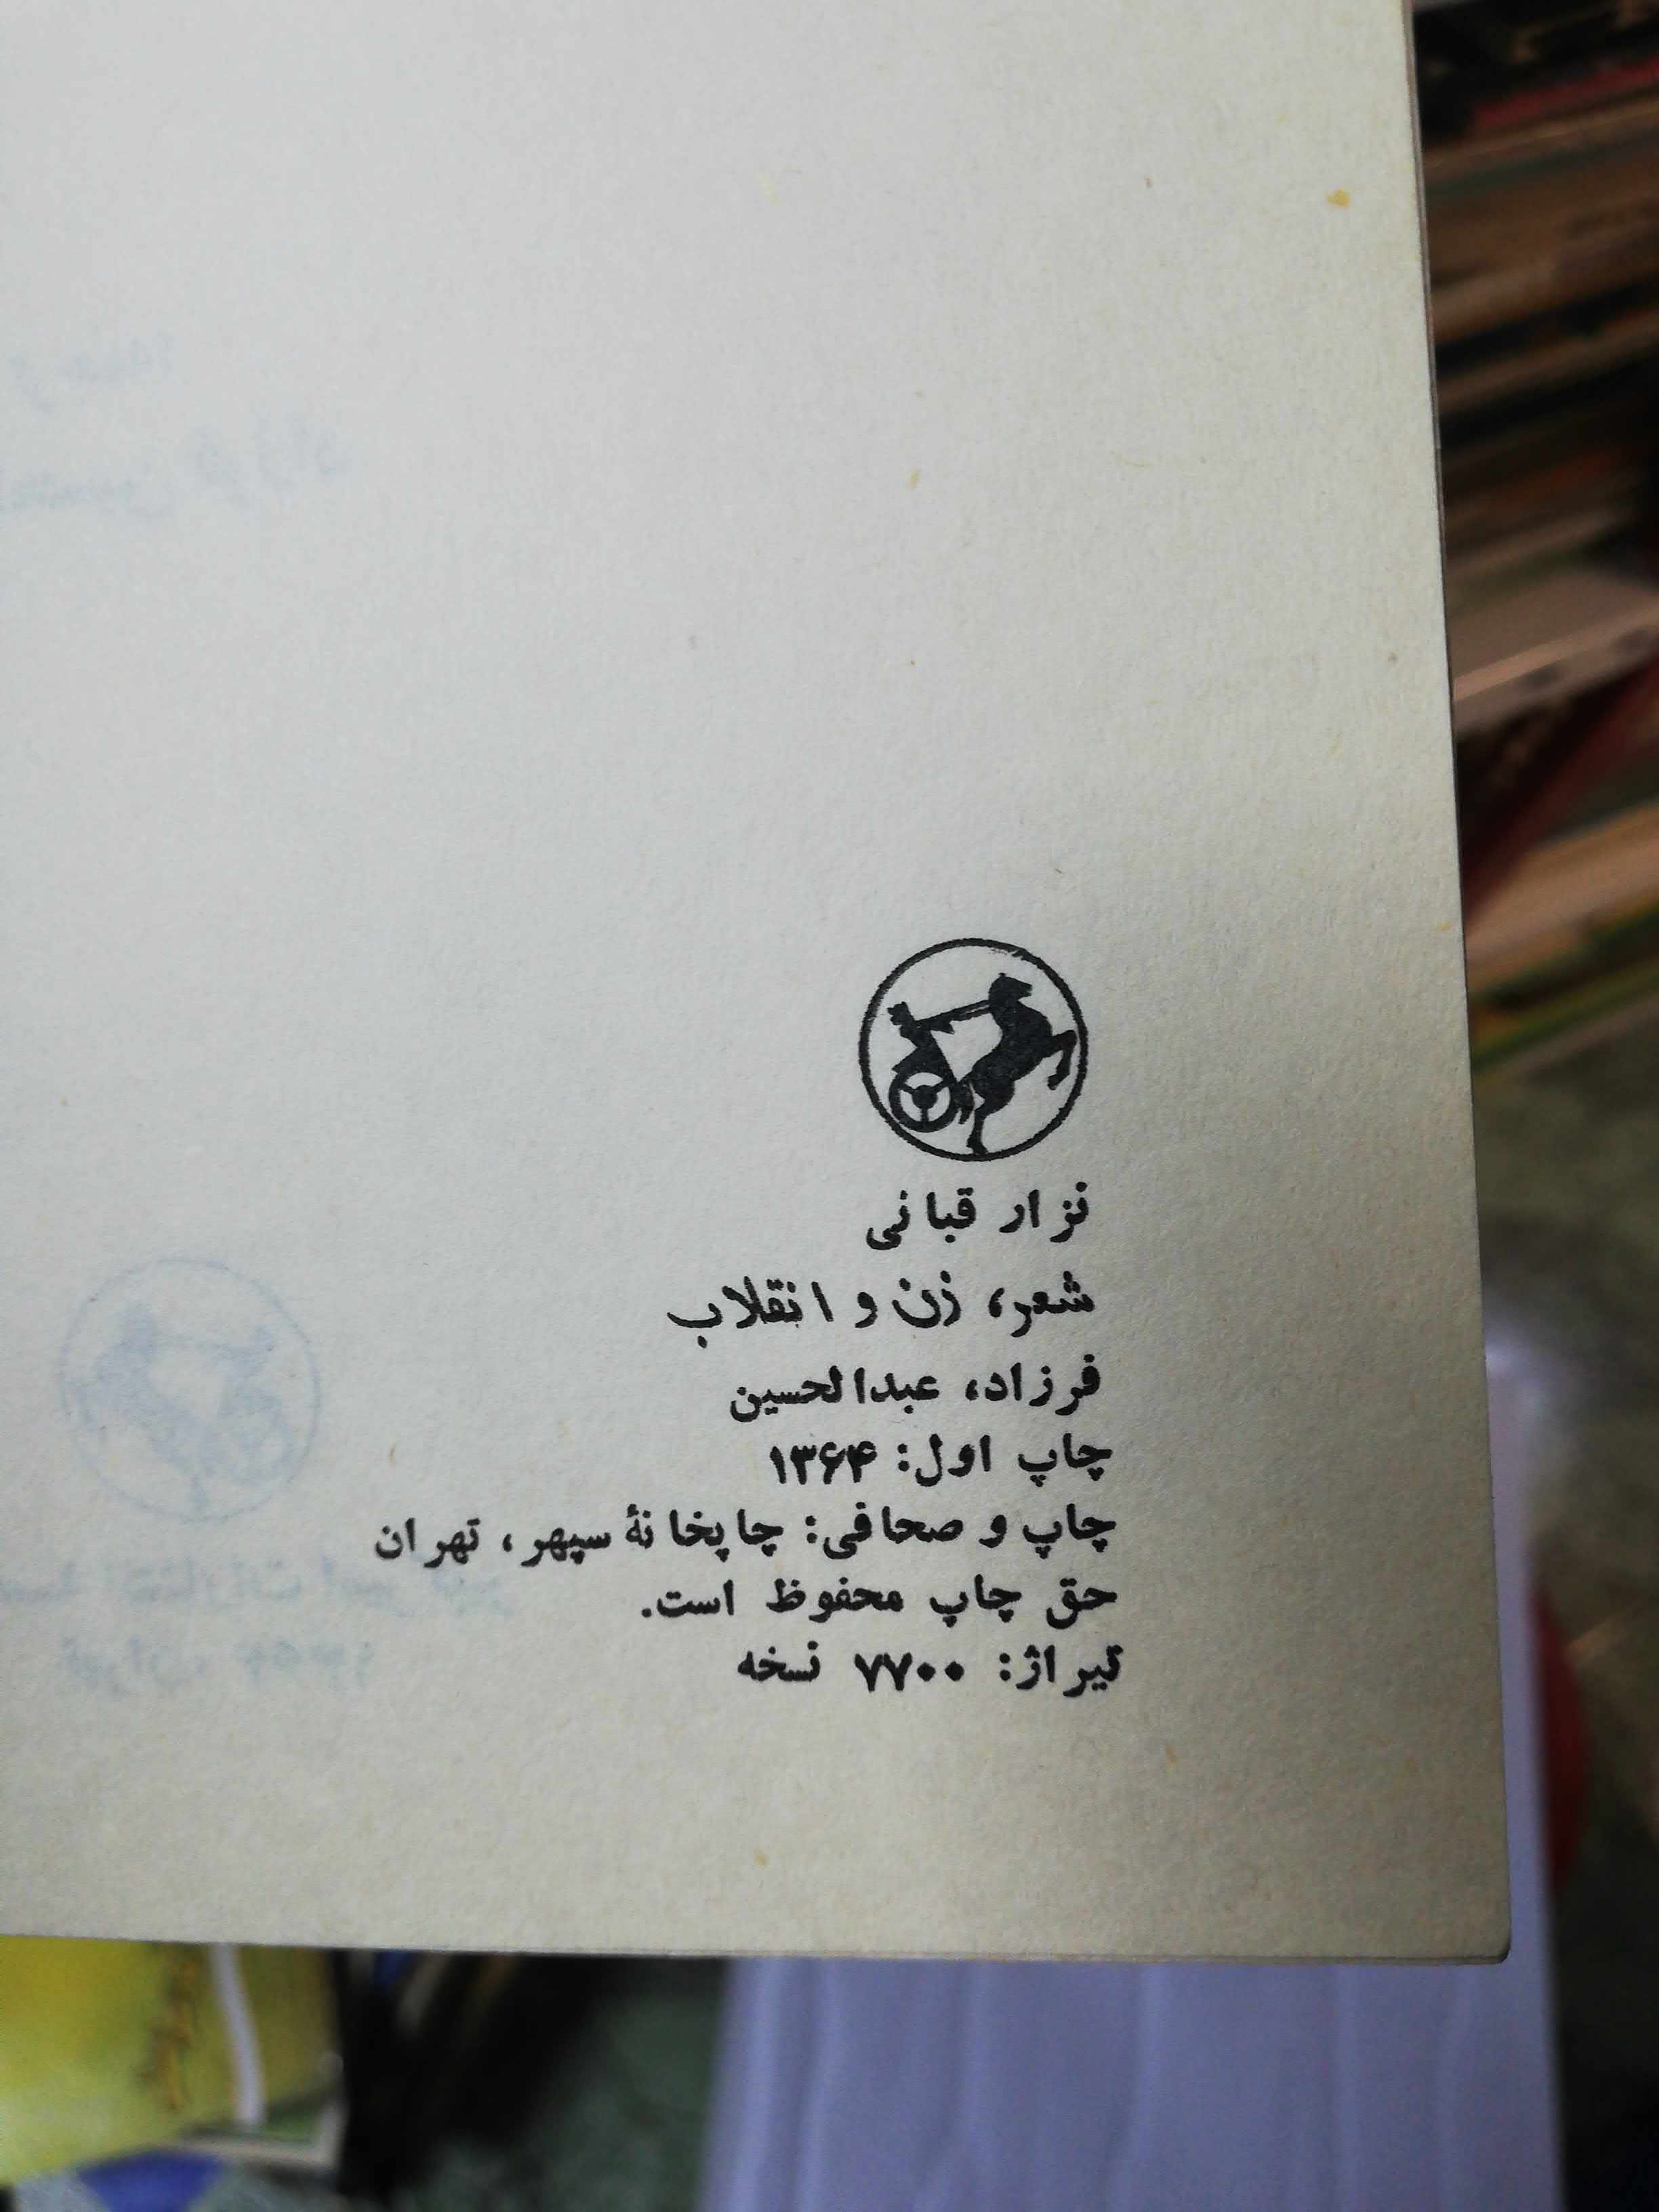 نزار قبانی
شعر، زن و انقلاب
فرزاد، عبدالحسین
چاپ اول: ۱۳۶۴
چاپ و صحافی: چاپخانهٔ سپهر، تهران
حق چاپ محفوظ است.
تیراژ: ۷۷۰۰ نسخه